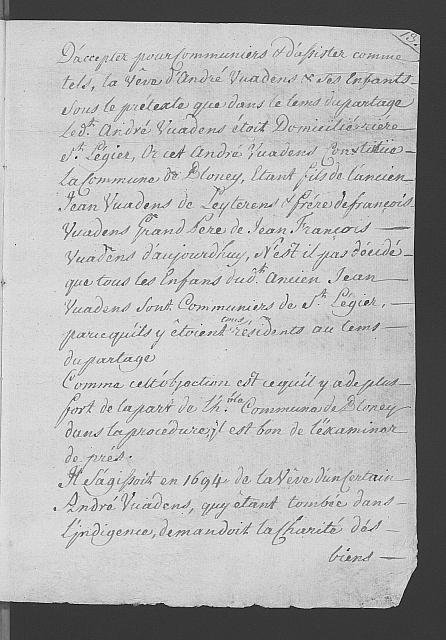 13.
D'accepter pour Communiers & d'assister comme
tels, la Vêve d'André Vuadens & Ses Enfants
Sous le prétexte que dans le tems du partage
led.t André Vuadens êtoit Domicilié riére
S.t Légier, Or cet André Vuadens
la Commune de Bloney, Etant fils de l'ancien
Jean Vuadens de Leyterens & frére de françois
Vuadens Grand Pere de Jean François
Vuadens d'aujourdhuy, N'est il pas décidé
que tous les Enfans dud.t Ancien Jean
Vuadens Sont Communiers de S.t Légier,
parce qu'ils y êtoient tous résidents au tems
du partage
Comme cette objection est ce qu'il y a de plus
fort de la part de l'h.ble Commune de Bloney
dans la procedure, il est bon de l'examiner
de prés.
Il S'agissoit en 1694 de la Vêve d'un Certain
André Vuadens, quy êtant tombée dans
l'indigence, demandoit la Charité des
biens